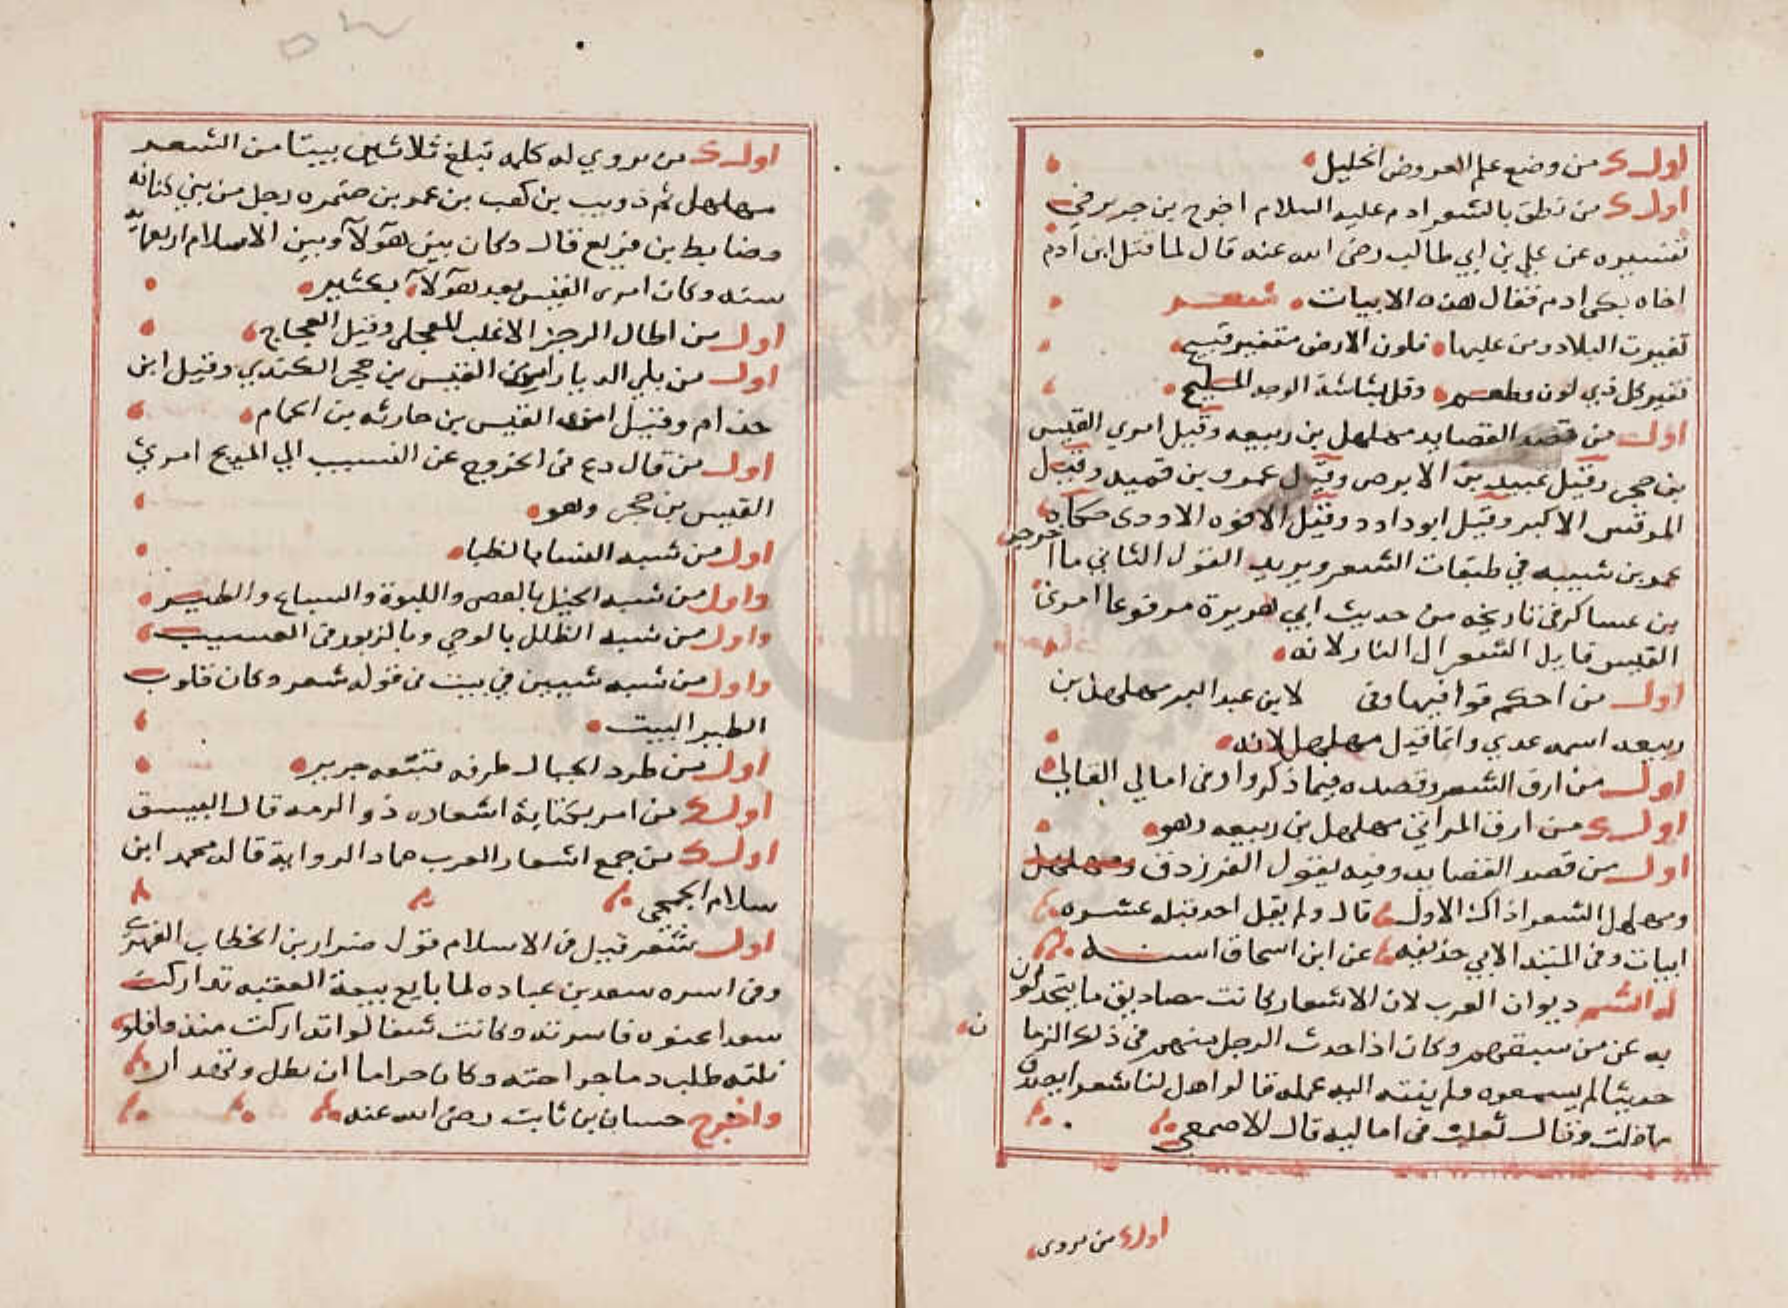 اول من وضع علم العروض الخليل
اول من نطق بالشعر ادم عليه السلام اخرج بن جرير في
تفسيره عن علي بن ابي طالب رضى الله عنه قال لما قتل ابن ادم
اخاه بكى ادم فقال هذه الابيات شعر
تغيرت البلاد ومن عليها فلون الارض متغير قبيح
تغير كل ذي لون وطعم وقل بشاشة الوجه المليح
اول من قصد القصايد مهلهل بن ربيعه وقيل امري القيس
بن حجر وقيل عبيد بن الابرص وقيل عمرو بن قميه وقيل
المرقش الاكبر وقيل ابو داود وقيل الافوه الاودى حكاه
عمر بن شيبه في طبقات الشعر ويريد القول الثاني ما اخرجه
بن عساكر في تاريخه من حديث ابي هريرة مرفوعا امرئ
القيس قايل الشعر ال النار لانه
اول من احكم قوافيها وفى لابن عبد البر مهلهل بن
ربيعه اسمه عدي وانما قيل مهلهل لانه
اول من ارق الشعر وقصده فيما ذكروا وفى امالي القالي
اول من ارق المراثي مهلهل بن ربيعه وهو
اول من قصد القصايد وفيه يقول الفرزدق ومهلهل
ومهلهل الشعر اذاك الاول قال ولم يقل احد قبله عشره
ابيات وفى المبتدا لابي حذيفه عن ابن اسحاق اسند
له الشعر ديوان العرب لان الاشعار كانت مصاديق ما يتحدثون
به عن من سبقهم وكان اذا حدث الرجل منهم فى ذلك الزما
ن
حديثا لم يسمعوه ولم يفته اليه عمله قالوا هل لنا شعر ايصدق
ما قلت وقال ثعلب فى اماليه قال الاصمعي
اول من يروى
اول من يروي له كلمه تبلغ ثلاثين بيتا من الشعر
مهلهل ثم ذويب بن كعب بن عمر بن ضمره رجل من بني كنانه
وضابط بن قال وكان بين هولا وبين الاسلام اربعمايه
سنه وكان امرى القيس بعد هولا بكثير
اول من اطال الرجز الاغلب العجلى وقيل العجاج
اول من بكي الديار امرئ القيس بن حجر الكندي وقيل ابن
حذام وقيل امرى القيس بن حارثه بن الحمام
اول من قال دع فى الخروج عن النسيب الي المديح امرئ
القيس بن حجر وهو
اول من شبه النسا بالظبا
واول من شبه الخيل بالعصى واللبوة والسباع والطير
واول من شبه الطلل بالوحي وبالزبور فى العسيب
واول من شبه شيين في بيت فى قوله شعر وكان قلوب
الطير البيت
اول من طرد الخيال طرفه فتبعه جرير
اول من امر بكتابة اشعاره ذو الرمه قال
اول من جمع اشعار العرب حماد الرواية قاله محمد ابن
سلام الجمحي
اول شعر قيل فى الاسلام قول ضرار بن الخطاب الفهرى
وفى اسره سعد بن عباده لما بايع بيعة العقبه تداركت
سعدا عنوه فاسرته وكانت شفا لو تداركت منذ
نلته طلب دما جراحته وكان حراما ان يطل
واخرج حسان بن ثابت رضى الله عنه